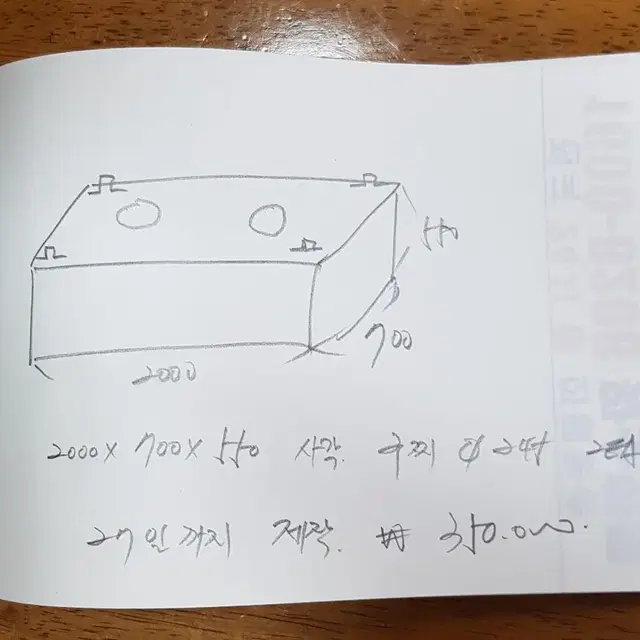 550
700
2000
2000 x 700 x 550 사각. 구찌 ∅ 2EA
27일 까지 제작. ₩ 350.000.